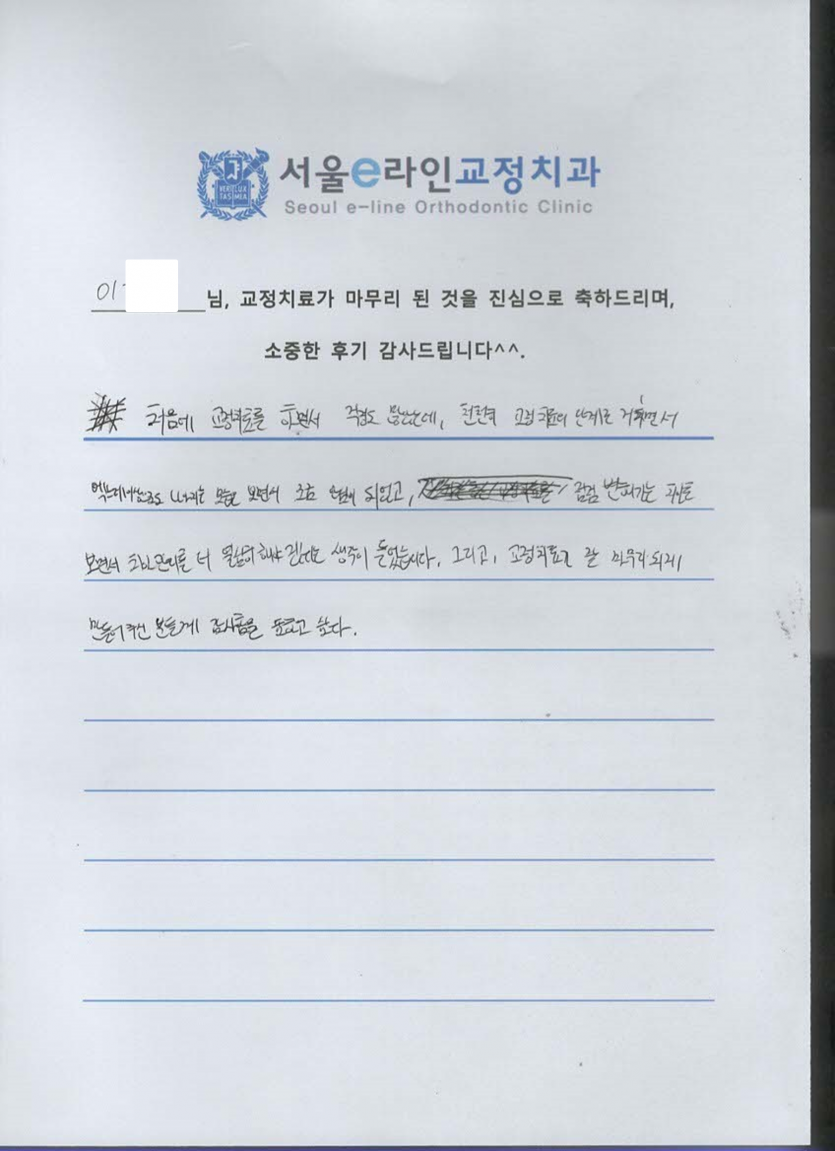 서울e라인교정치과
Seoul e-line Orthodontic Clinic
VERI LUX TAS MEA
이 님, 교정치료가 마무리 된 것을 진심으로 축하드리며,
소중한 후기 감사드립니다^^.
처음에 교정치료를 하면서 걱정도 많았는데, 천천히 교정치료의 단계를 거치면서
모습을 보면서 조금 안심이 되었고, 점점 변해가는 치아를
보면서 치아관리를 더 열심히 해야 겠다는 생각이 들었습니다. 그리고, 교정치료가 잘 마무리되게
만들어주신 분들께 감사함을 표하고 싶다.